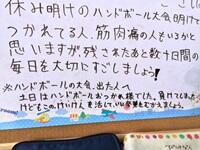 休み明けのハンドボール大会明けで
つかれてる人、筋肉痛の人もいるかと
思いますが、残されたあと数十日間の
毎日を大切にすごしましょう!
※ハンドボールの大会、出た人へ
土日はハンドボールおつかれ様でした。負けてし
けどもこのけいけんを活して、いい